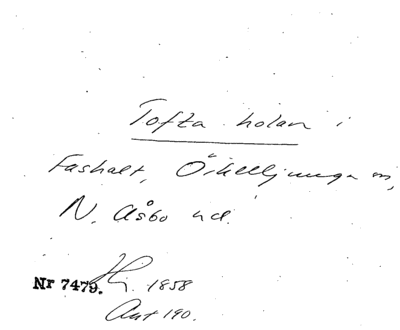 Tofta holan i
Fashalt, Örkelljunga sn,
N. Åsbo hd.
Nr 7479. 1858
Aut 190.